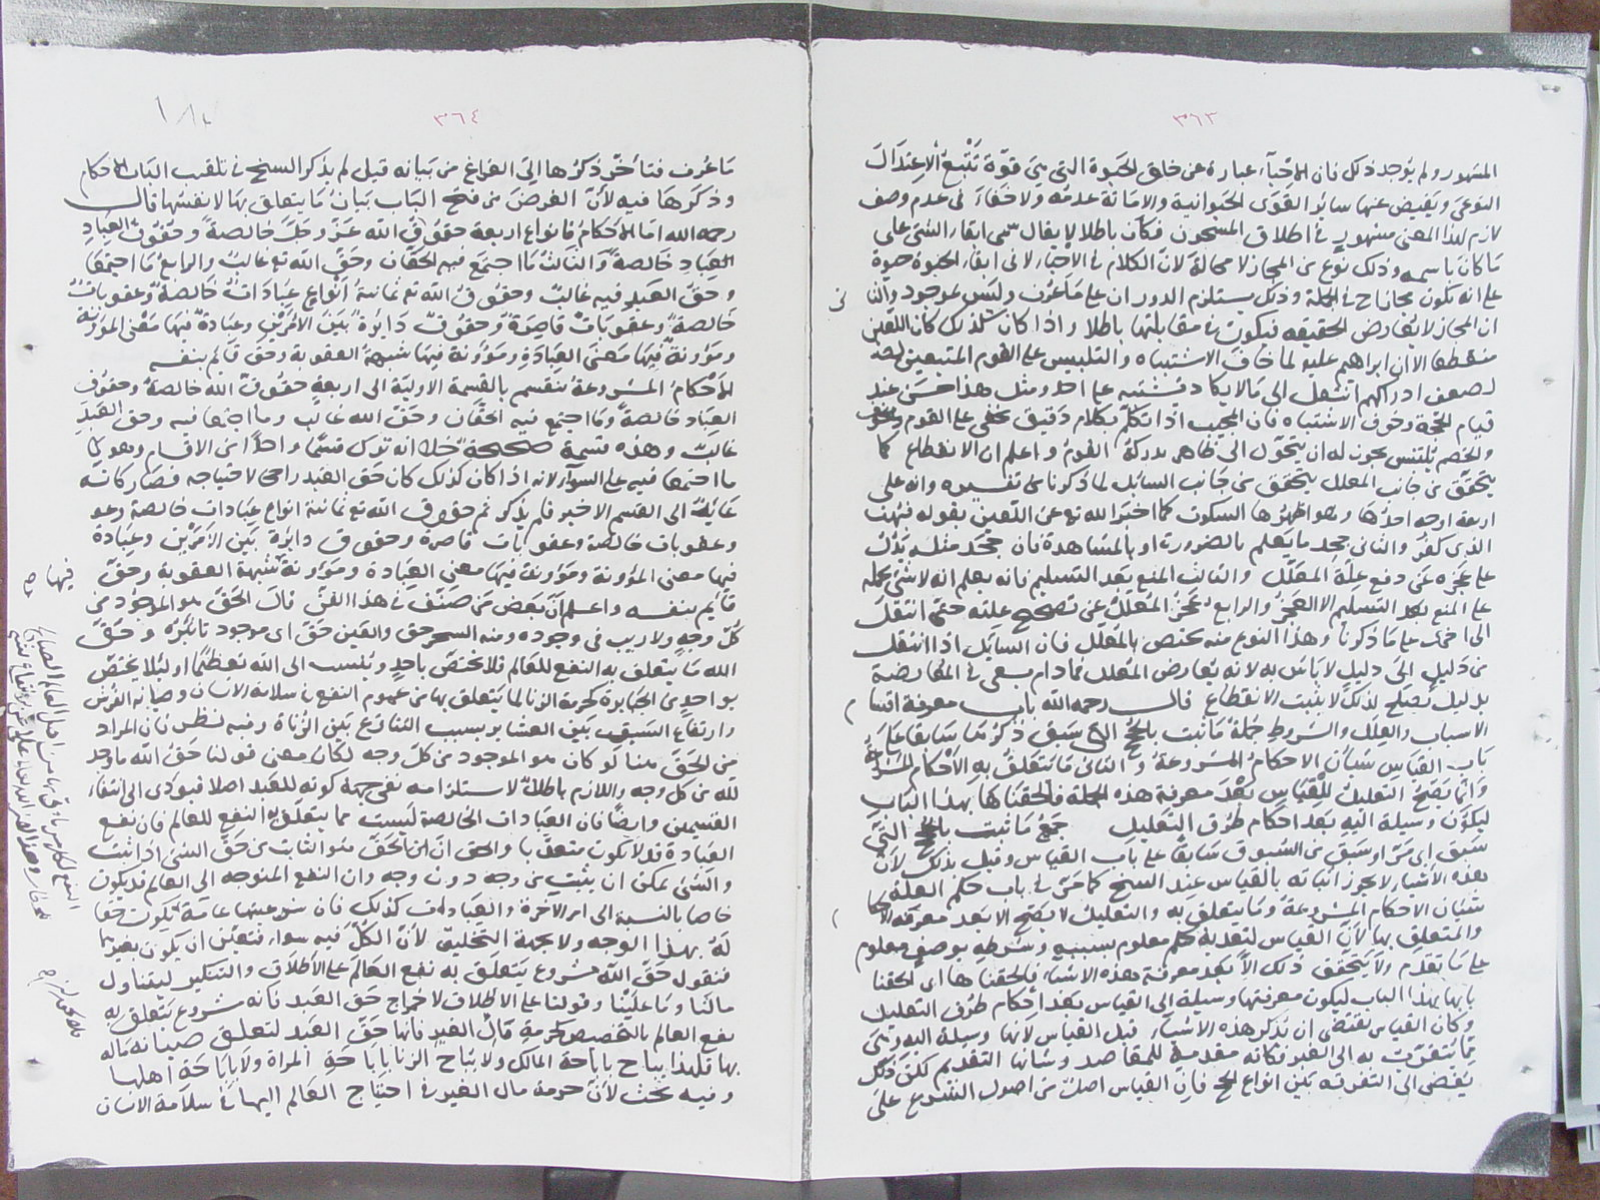 ٣٦٣
المشهور ولم يوجد ذلك فان الاحياء عبارة عن خلق الحيوة التى هى قوة تتبع الاعتدال
النوعى ويفيض عنها سائر القوى الحيوانية والاماتة عدمه ولا خفاء فى عدم وصف
لازم لهذا المعنى مشهور فى اطلاق المسجون فكان باطلا لا يقال سمى ابقاء الشى على
ما كان باسمه وذلك نوع من المجاز لا محالة لان الكلام فى الاحياء لا فى ابقاء الحيوة حيوة
على انه يكون مجازا فى الجملة وذلك يستلزم الدوران على ما عرف وليس بموجود والثانى
ان المجاز لا يعارض الحقيقة فيكون فى مقابلتها باطلا واذا كان كذلك كان اللعين
منقطعا الا ان ابراهيم عليه لما خاف الاشتباه والتلبيس على القوم المتبعين لهذ
لضعف ادراكهم انتقل الى ما لا يكاد يشتبه على احد ومثل هذا حسن عند
قيام الحجة وخوف الاشتباه فان المجيب اذا تكلم بكلام دقيق يخفى على القوم
والخصم يلتبس يجوز له ان يتحول الى ظاهر يدركه القوم واعلم ان الانقطاع كما
يتحقق من جانب المعلل يتحقق من جانب السائل لما ذكرنا من تفسيره وانه على
اربعة اوجه احدها وهو اظهرها السكوت كما اخبر الله تع عن اللعين بقوله فبهت
الذى كفر والثانى جحد ما يعلم بالضرورة او بالمشاهدة فان جحد مثله يدل
على عجزه عن دفع علة المعلل والثالث المنع بعد التسليم فانه يعلم انه لا شى يحمله
على المنع بعد التسليم الا العجز والرابع عجز المعلل عن تصحيح علته حتى انتقل
الى اخرى على ما ذكرنا وهذا النوع منه مختص بالمعلل فان السائل اذا انتقل
من دليل الى دليل لا باس به لانه يعارض المعلل فما دام يسعى فى المعارضة
بدليل يصلح لذلك لا يثبت الانقطاع قال رحمه الله باب معرفة اقسام
الاسباب والعلل والشروط جملة ما ثبت بالحجج التى سبق ذكرها سابقا على
باب القياس شيان الاحكام المشروعة والثانى ما يتعلق به الاحكام المشروعة
وانما يصح التعليل للقياس بعد معرفة هذه الجملة فالحقناها بهذا الباب
ليكون وسيلة اليه بعد احكام طرق التعليل جميع ما ثبت بالحجج التى
سبق اى مر او سبق من السبوق سابقا على باب القياس وقيل بذلك لان
هذه الاشياء لا يجوز اثباته بالقياس عند الشيخ كما مر فى باب حكم العلة
شيان الاحكام المشروعة وما يتعلق به والتعليل لا يصح الا بعد معرفة الاحكام
والمتعلق بها لان القياس لتعدية حكم معلوم بسببه وشرطه بوصف معلوم
على ما تقدم ولا يتحقق ذلك الا بعد معرفة هذه الاشياء فالحقناها اى الحقنا
بابها بهذا الباب ليكون معرفتها وسيلة الى القياس بعد احكام طرق التعليل
وكان القياس يقتضى ان نذكر هذه الاشياء قبل القياس لانها وسيلة اليه وهى
ما يتقرب به الى الغير فكانه مقدمة للمقاصد وشانها التقديم لكن ذلك
يفضى الى التفرقة بين انواع الحجج فان القياس اصل من اصول الشرع على
٣٦٤
ما عرف فتأخر ذكرها الى الفراغ من بيانه قيل لم يذكر الشيخ فى تلقيب الباب الاحكام
وذكرها فيه لان الغرض من فتح الباب بيان ما يتعلق بها لا نفسها قال
رحمه الله اما الاحكام فانواع اربعة حقوق الله عز وجل خالصة وحقوق العباد
العباد خالصة والثالث ما اجتمع فيه الحقان وحق الله تع غالب والرابع ما اجتمعا
وحق العبد فيه غالب وحقوق الله تع ثمانية انواع عبادات خالصة وعقوبات
خالصة وعقوبات قاصرة وحقوق دائرة بين الامرين وعبادة فيها معنى المؤونة
ومؤونة فيها معنى العبادة ومؤونة فيها شبهة العقوبة وحق قائم بنفسه
الاحكام المشروعة تنقسم بالقسمة الاولية الى اربعة حقوق الله خالصة وحقوق
العباد خالصة وما اجتمع فيه الحقان وحق الله غالب وما اجتمعا فيه وحق العبد
غالب وهذه قسمة صحيحة خلا انه ترك قسما واحدا من الاقسام وهو
ما اجتمعا فيه على السوآء لانه اذا كان كذلك كان حق العبد راجحا لاحتياجه فصار كانه
غايته الى القسم الاخير فلم يذكر ثم حقوق الله تع ثمانية انواع عبادات خالصة وعقو
وعقوبات خالصة وعقوبات قاصرة وحقوق دائرة بين الامرين وعبادة
فيها معنى المؤونة ومؤونة فيها معنى العبادة ومؤونة شبهة العقوبة وحق
قائم بنفسه واعلم ان بعض من صنف فى هذا الفن قال الحق هو الموجود من
كل وجه ولا ريب فى وجوده ومنه السحر حق والعين حق اى موجود تاثيره وحق
الله ما يتعلق به النفع للعالم فلا يختص باحد وينسب الى الله تعظيما او لئلا يختص
بواحد من الجبابرة كحرمة الزنا لما يتعلق بها من عموم النفع فى سلامة الانسان وصيانة الفرش
وارتفاع السيف بين العشاير بسبب التنازع بين الزناة وفيه نظر فان المراد
من الحق هنا لو كان هو الموجود من كل وجه لكان معنى قولنا حق الله ما وجد
لله من كل وجه واللازم باطل لاستلزامه نفى جهة كونه للعبد اصلا فيؤدى الى انتفاء
القسمين وايضا فان العبادات الخالصة ليست مما يتعلق به النفع للعالم فان نفع
العبادة قد لا يكون متعديا والحق ان الحق هو الثابت من حق الشى اذا ثبت
والشى يمكن ان يثبت من وجه دون وجه وان النفع المتوجه الى العالم قد يكون
خاصا بالنسبة الى امر الآخرة والعبادات كذلك فان شرعيتها عامة يكون حقا
له بهذا الوجه ولا بجهة التخليق لان الكل فيه سواء فتعين ان يكون بغيرها
فنقول حق الله مشروع يتعلق به نفع العالم على الاطلاق والتنكير ليتناول
ما لنا وما علينا وقولنا على الاطلاق لاخراج حق العبد فانه مشروع يتعلق به
نفع العالم بالتخصيص كحرمة مال الغير فانها حق العبد لتعلق صيانة ماله
بها فلهذا يباح باباحة المالك ولا يباح الزنا باباحة المراة ولا باباحة اهلها
وفيه بحث لان حرمة مال الغير فى احتياج العالم اليها فى سلامة الانسان
فيها
صح